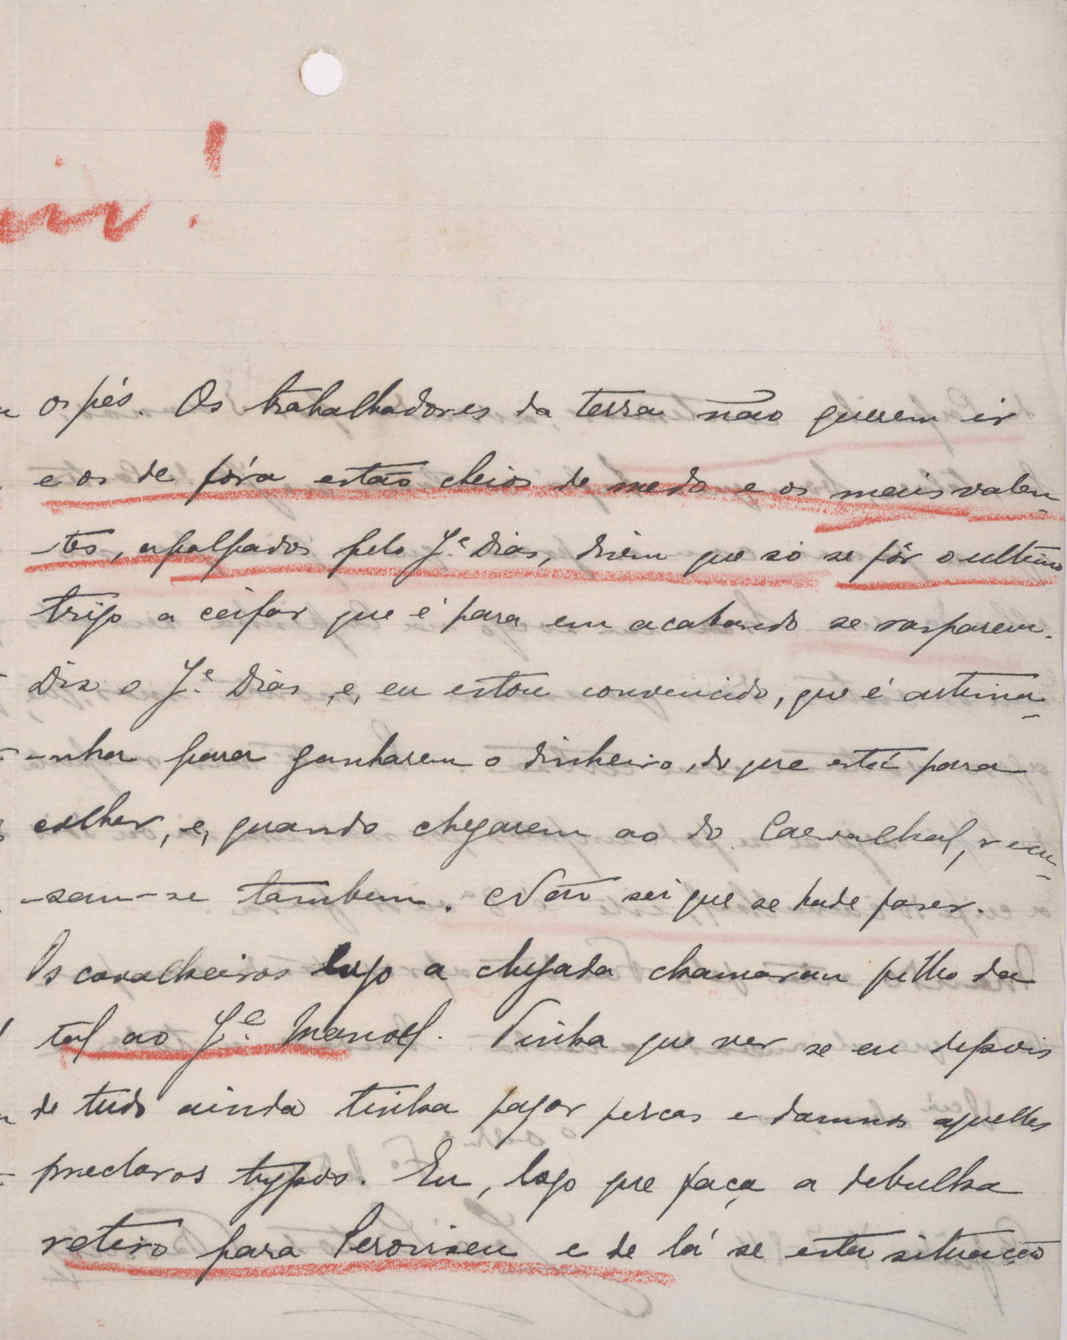 os pés. Os trabalhadores da terra não querem ir
e os de fóra estão cheios de medo e os mais valen
-tes, apalpados pelo J.e Dias, dizem que só se fôr o ultimo
trigo a ceifar que é para em acabando se rasparem.
Diz o J.e Dias, e, eu estou convencido, que é artima
-nha para ganharem o dinheiro, do que está para
colher, e, quando chegarem ao do Carvalhal, recu-
-sam-se tambem. Não sei que se hade fazer.
Os cavalheiros logo a chegada chamaram filho da
tal ao J.e Manoel. Tinha que ver se eu depois
de tudo ainda tinha pagar percas e damnos aquelles
preclaros typos. Eu, logo que faça a debulha
retiro para e de lá se esta situação